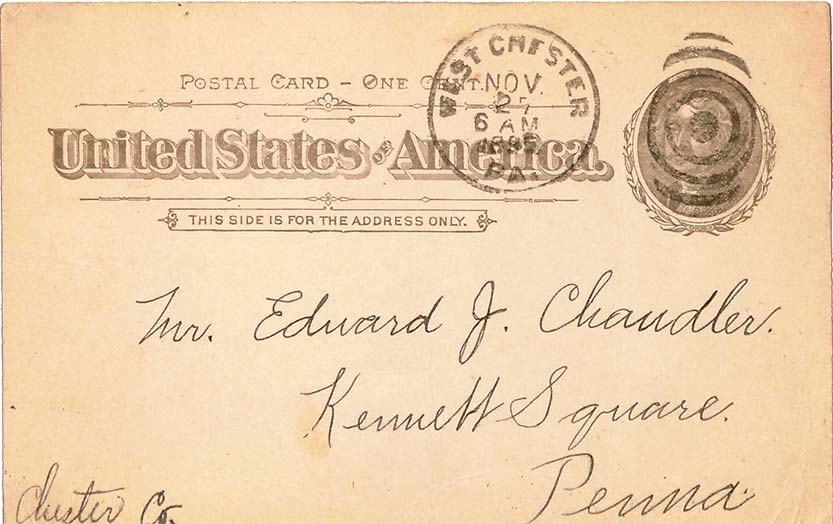 POSTAL CARD - ONE CENT.
United States OF America.
THIS SIDE IS FOR THE ADDRESS ONLY.
WEST CHESTER
NOV.
27
6 AM
1895
PA.
Mr. Edward J. Chandler.
Kennett Square.
Penna.
Chester Co.